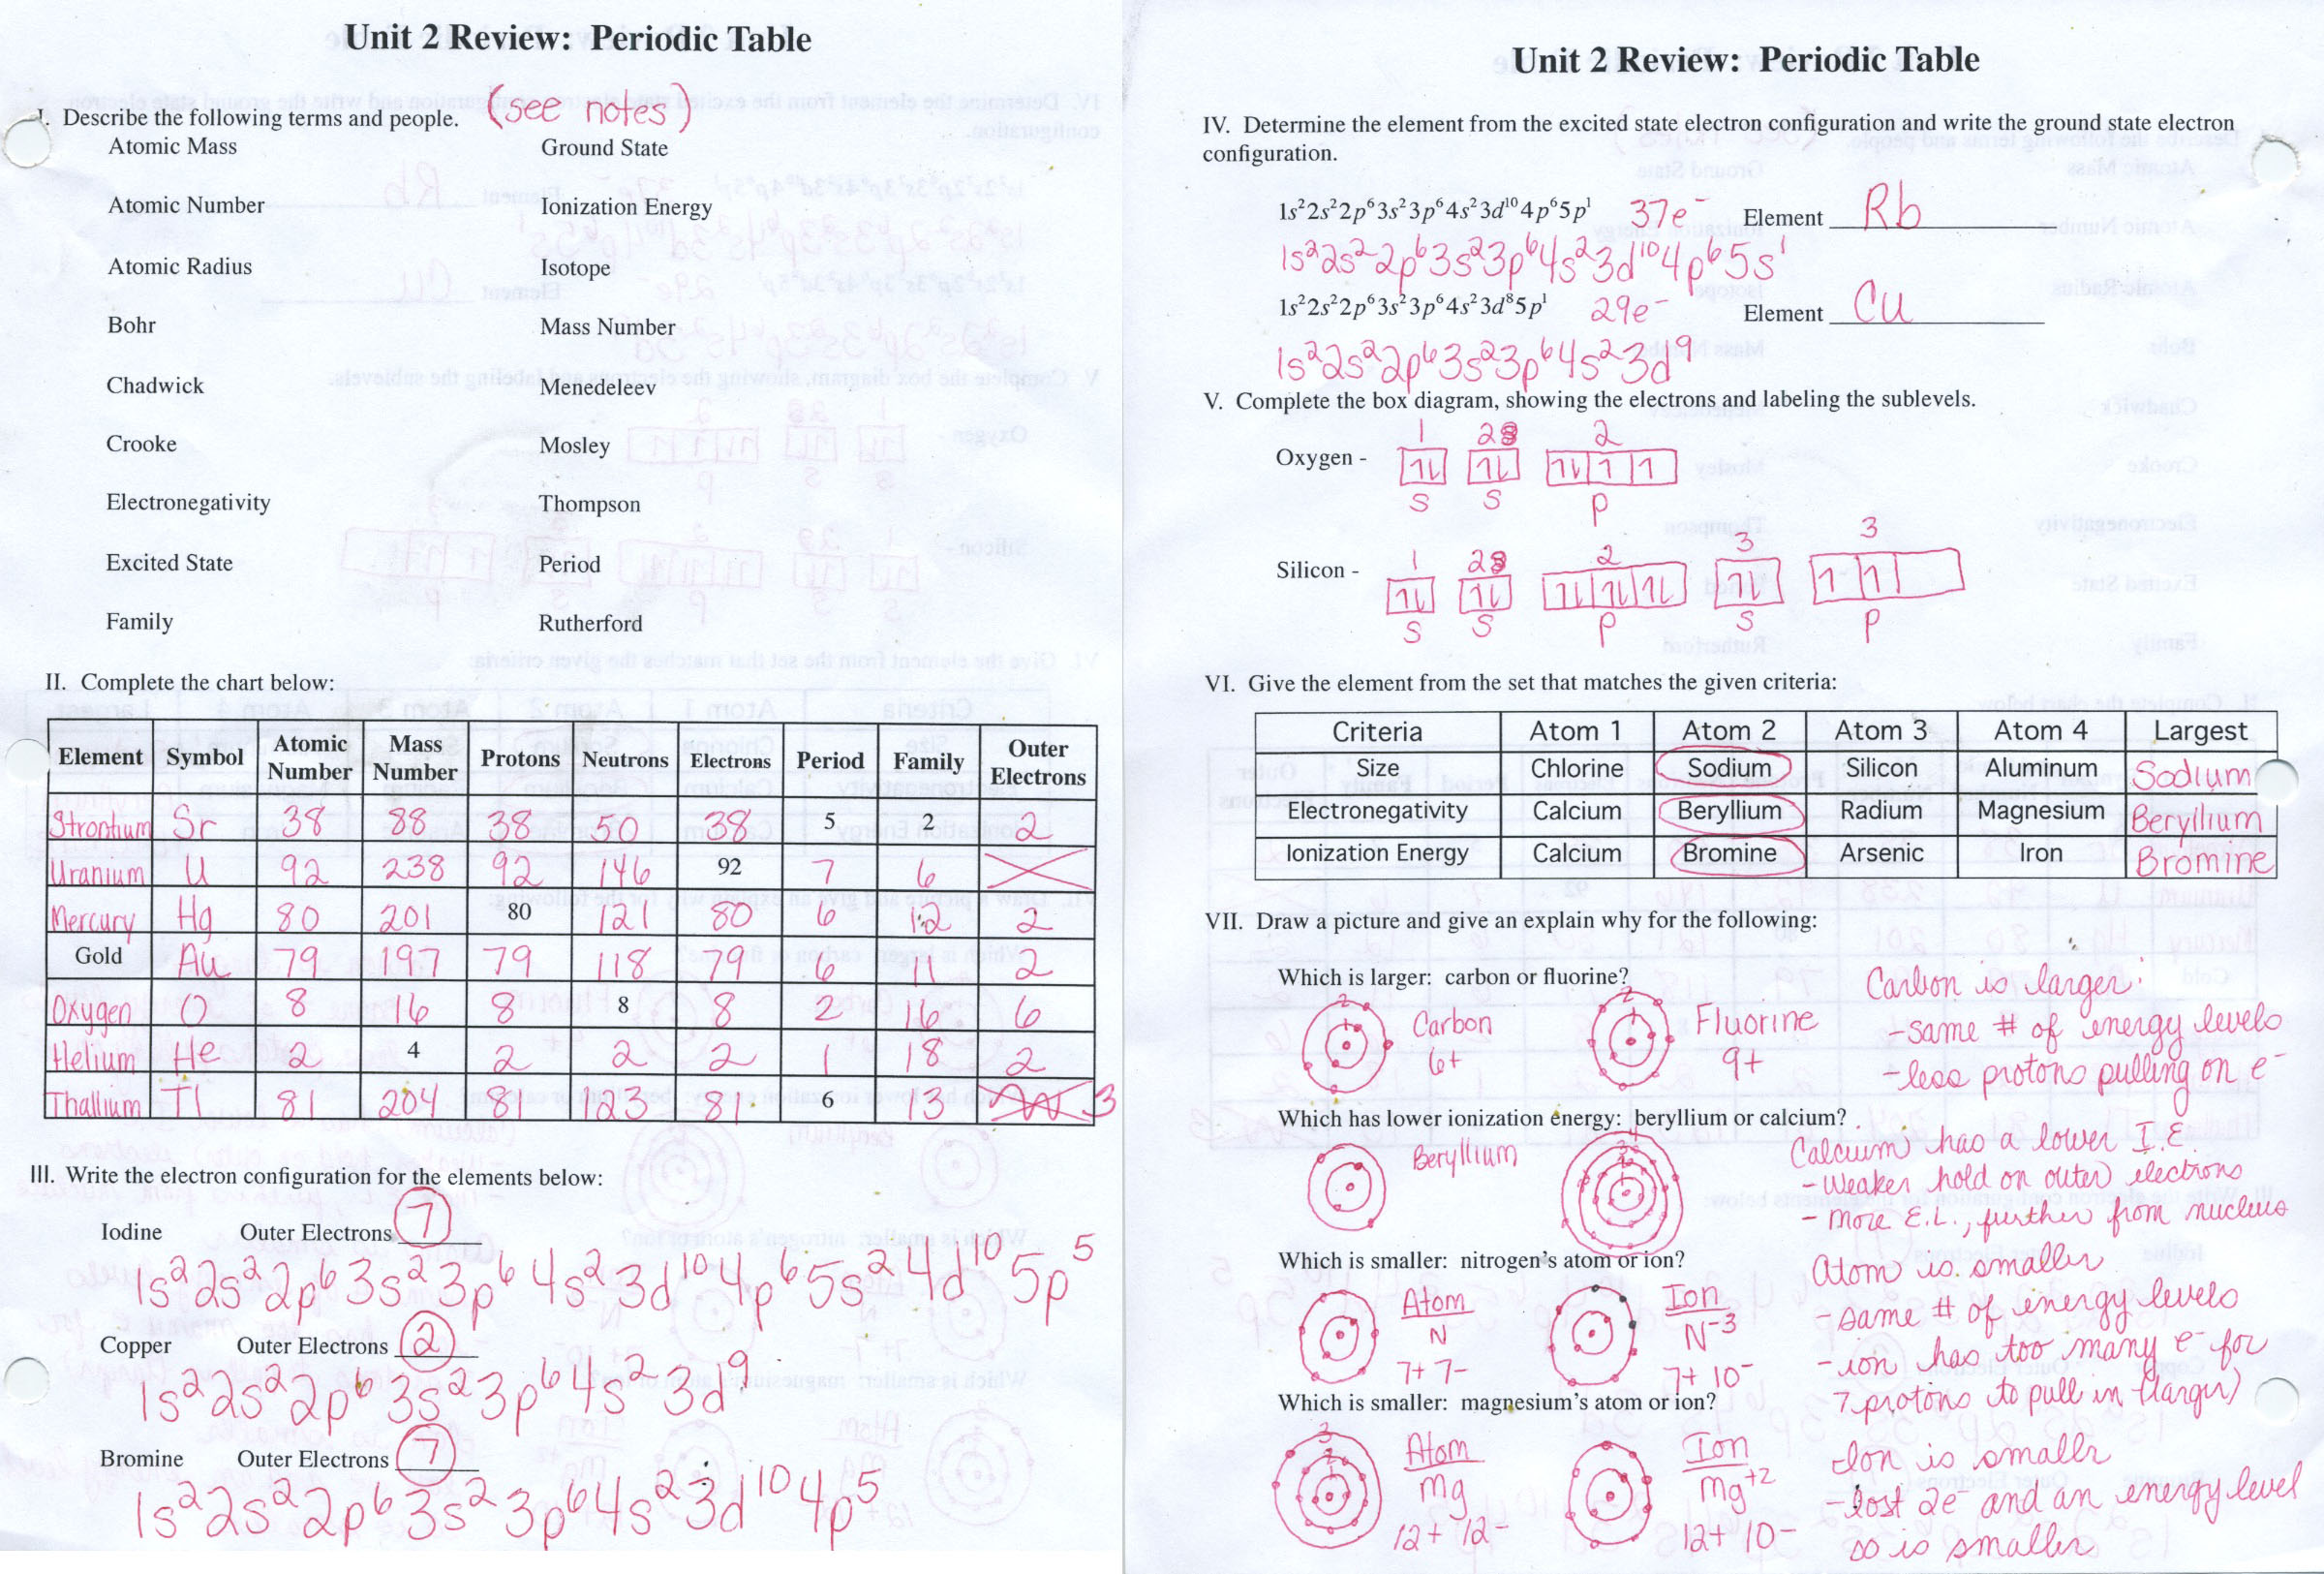 Unit 2 Review: Periodic Table
I. Describe the following terms and people. (see notes)
Atomic Mass Ground State
Atomic Number Ionization Energy
Atomic Radius Isotope
Bohr Mass Number
Chadwick Menedeleev
Crooke Mosley
Electronegativity Thompson
Excited State Period
Family Rutherford
II. Complete the chart below:
Element Symbol Atomic Number Mass Number Protons Neutrons Electrons Period Family Outer Electrons
Strontium Sr 38 88 38 50 38 5 2 2
Uranium U 92 238 92 146 92 7 6
Mercury Hg 80 201 80 121 80 6 12 2
Gold Au 79 197 79 118 79 6 11 2
Oxygen O 8 16 8 8 8 2 16 6
Helium He 2 4 2 2 2 1 18 2
Thallium Tl 81 204 81 123 81 6 13 3
III. Write the electron configuration for the elements below:
Iodine Outer Electrons 7
1s²2s²2p⁶3s²3p⁶4s²3d¹⁰4p⁶5s²4d¹⁰5p⁵
Copper Outer Electrons 2
1s²2s²2p⁶3s²3p⁶4s²3d⁹
Bromine Outer Electrons 7
1s²2s²2p⁶3s²3p⁶4s²3d¹⁰4p⁵
Unit 2 Review: Periodic Table
IV. Determine the element from the excited state electron configuration and write the ground state electron
configuration.
1s²2s²2p⁶3s²3p⁶4s²3d¹⁰4p⁶5p¹ 37e⁻ Element Rb
1s²2s²2p⁶3s²3p⁶4s²3d¹⁰4p⁶5s¹
1s²2s²2p⁶3s²3p⁶4s²3d⁸5p¹ 29e⁻ Element Cu
1s²2s²2p⁶3s²3p⁶4s²3d⁹
V. Complete the box diagram, showing the electrons and labeling the sublevels.
1 2 2
Oxygen - 1l 1l 1l 1 1
s s p
1 2 2 3 3
Silicon - 1l 1l 1l 1l 1l 1l 1 1
s s p s p
VI. Give the element from the set that matches the given criteria:
Criteria Atom 1 Atom 2 Atom 3 Atom 4 Largest
Size Chlorine Sodium Silicon Aluminum Sodium
Electronegativity Calcium Beryllium Radium Magnesium Beryllium
Ionization Energy Calcium Bromine Arsenic Iron Bromine
VII. Draw a picture and give an explain why for the following:
Which is larger: carbon or fluorine?
Carbon 6+
Fluorine 9+
Carbon is larger:
-same # of energy levels
-less protons pulling on e⁻
Which has lower ionization energy: beryllium or calcium?
Beryllium
Calcium has a lower I.E.
-weaker hold on outer electrons
- more E.L., further from nucleus
Which is smaller: nitrogen's atom or ion?
Atom N 7+ 7-
Ion N⁻³ 7+ 10⁻
Atom is smaller
-same # of energy levels
-ion has too many e⁻ for
7 protons to pull in (larger)
Which is smaller: magnesium's atom or ion?
Atom Mg 12+ 12-
Ion Mg⁺² 12+ 10-
Ion is smaller
-lost 2e⁻ and an energy level
so is smaller